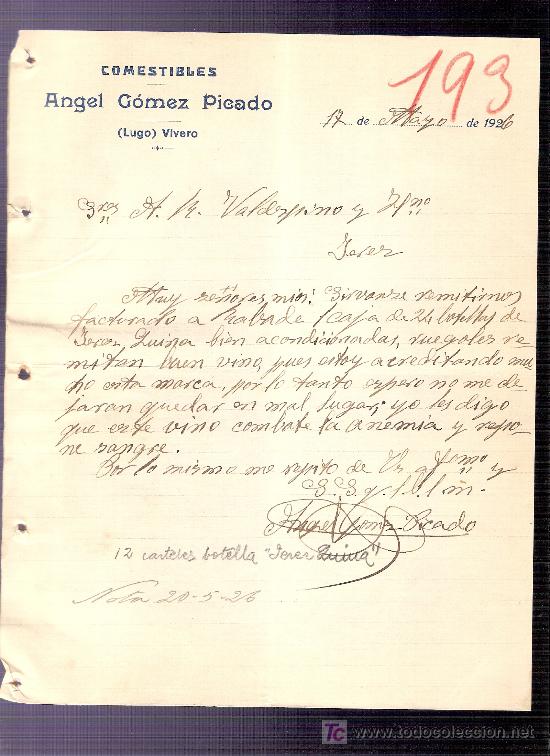 COMESTIBLES
Angel Gómez Picado
(Lugo) Vivero
193
17 de Mayo de 1926
Sres A. R. Valdespino y Hno
Jerez
Muy señores mios: Sirvanse remitirnos
facturado a Rabade 1 caja de 24 botellas de
Jerez Quina bien acondicionadas, ruegoles re
mitan buen vino, pues estoy acreditando mu
cho esta marca, por lo tanto espero no me de
jaran quedar en mal lugar; yo les digo
que este vino combate la anemia y repo
ne sangre.
Por lo mismo me repito de Vs afmo y
S. S. q. s. m.
Angel Gomez Picado
12 carteles botella "Jerez Quina"
Nota 20-5-26
todocoleccion
www.todocoleccion.net